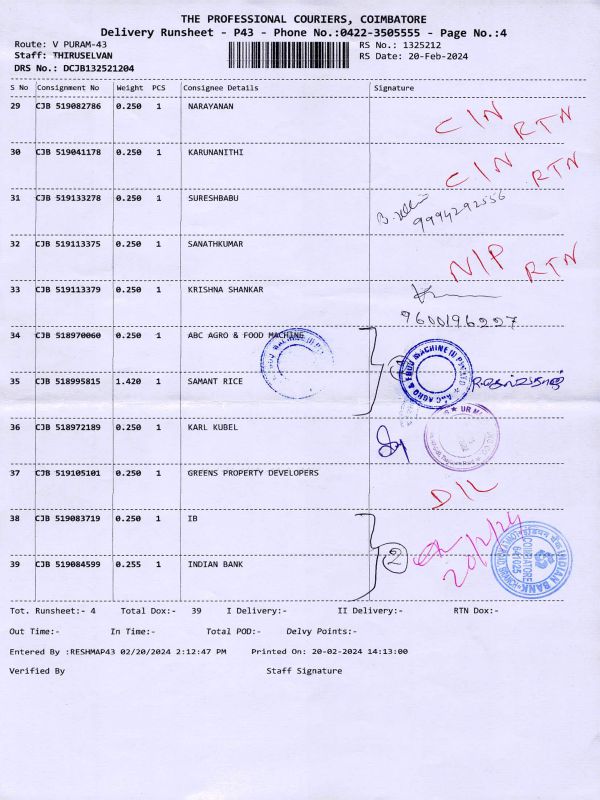 THE PROFESSIONAL COURIERS, COIMBATORE
Delivery Runsheet - P43 - Phone No.:0422-3505555 - Page No.:4
Route: V PURAM-43 RS No.: 1325212
Staff: THIRUSELVAN RS Date: 20-Feb-2024
DRS No.: DCJB132521204
S No Consignment No Weight PCS Consignee Details Signature
29 CJB 519082786 0.250 1 NARAYANAN CIN RTN
30 CJB 519041178 0.250 1 KARUNANITHI CIN RTN
31 CJB 519133278 0.250 1 SURESHBABU 9994292556
32 CJB 519113375 0.250 1 SANATHKUMAR NIP RTN
33 CJB 519113379 0.250 1 KRISHNA SHANKAR
9600196227
34 CJB 518970060 0.250 1 ABC AGRO & FOOD MACHINE
35 CJB 518995815 1.420 1 SAMANT RICE
36 CJB 518972189 0.250 1 KARL KUBEL
37 CJB 519105101 0.250 1 GREENS PROPERTY DEVELOPERS D/L
38 CJB 519083719 0.250 1 IB
39 CJB 519084599 0.255 1 INDIAN BANK 2 20/2/24
INDIAN BANK
COIMBATORE
641025
Tot. Runsheet:- 4 Total Dox:- 39 I Delivery:- II Delivery:- RTN Dox:-
Out Time:- In Time:- Total POD:- Delvy Points:-
Entered By :RESHMAP43 02/20/2024 2:12:47 PM Printed On: 20-02-2024 14:13:00
Verified By Staff Signature